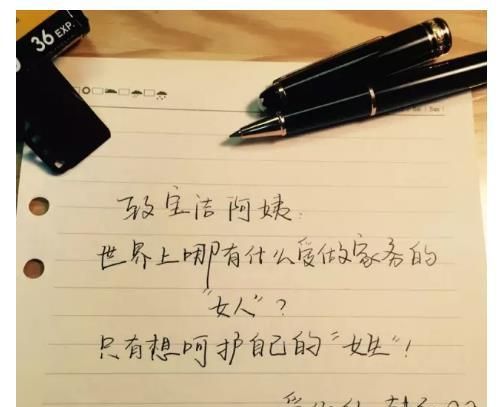 36 EXP.
致宝洁阿姨:
世界上哪有什么爱做家务的
"女人"?
只有想呵护自己的"女生"!